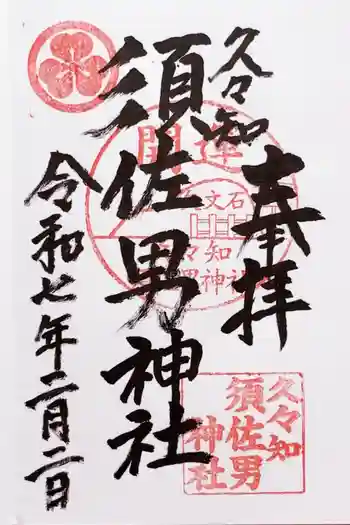 久々知
奉拝
須佐男神社
令和七年二月二日
開運
文石
久々知
須佐男神社
久々知
須佐男
神社